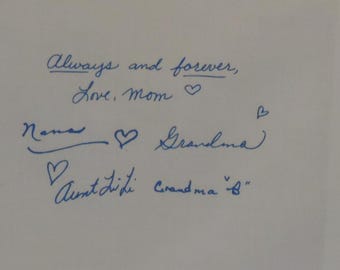 Always and forever,
Love, Mom ♡
Nana ♡ Grandma ♡
♡ Aunt LiLi Grandma "B"